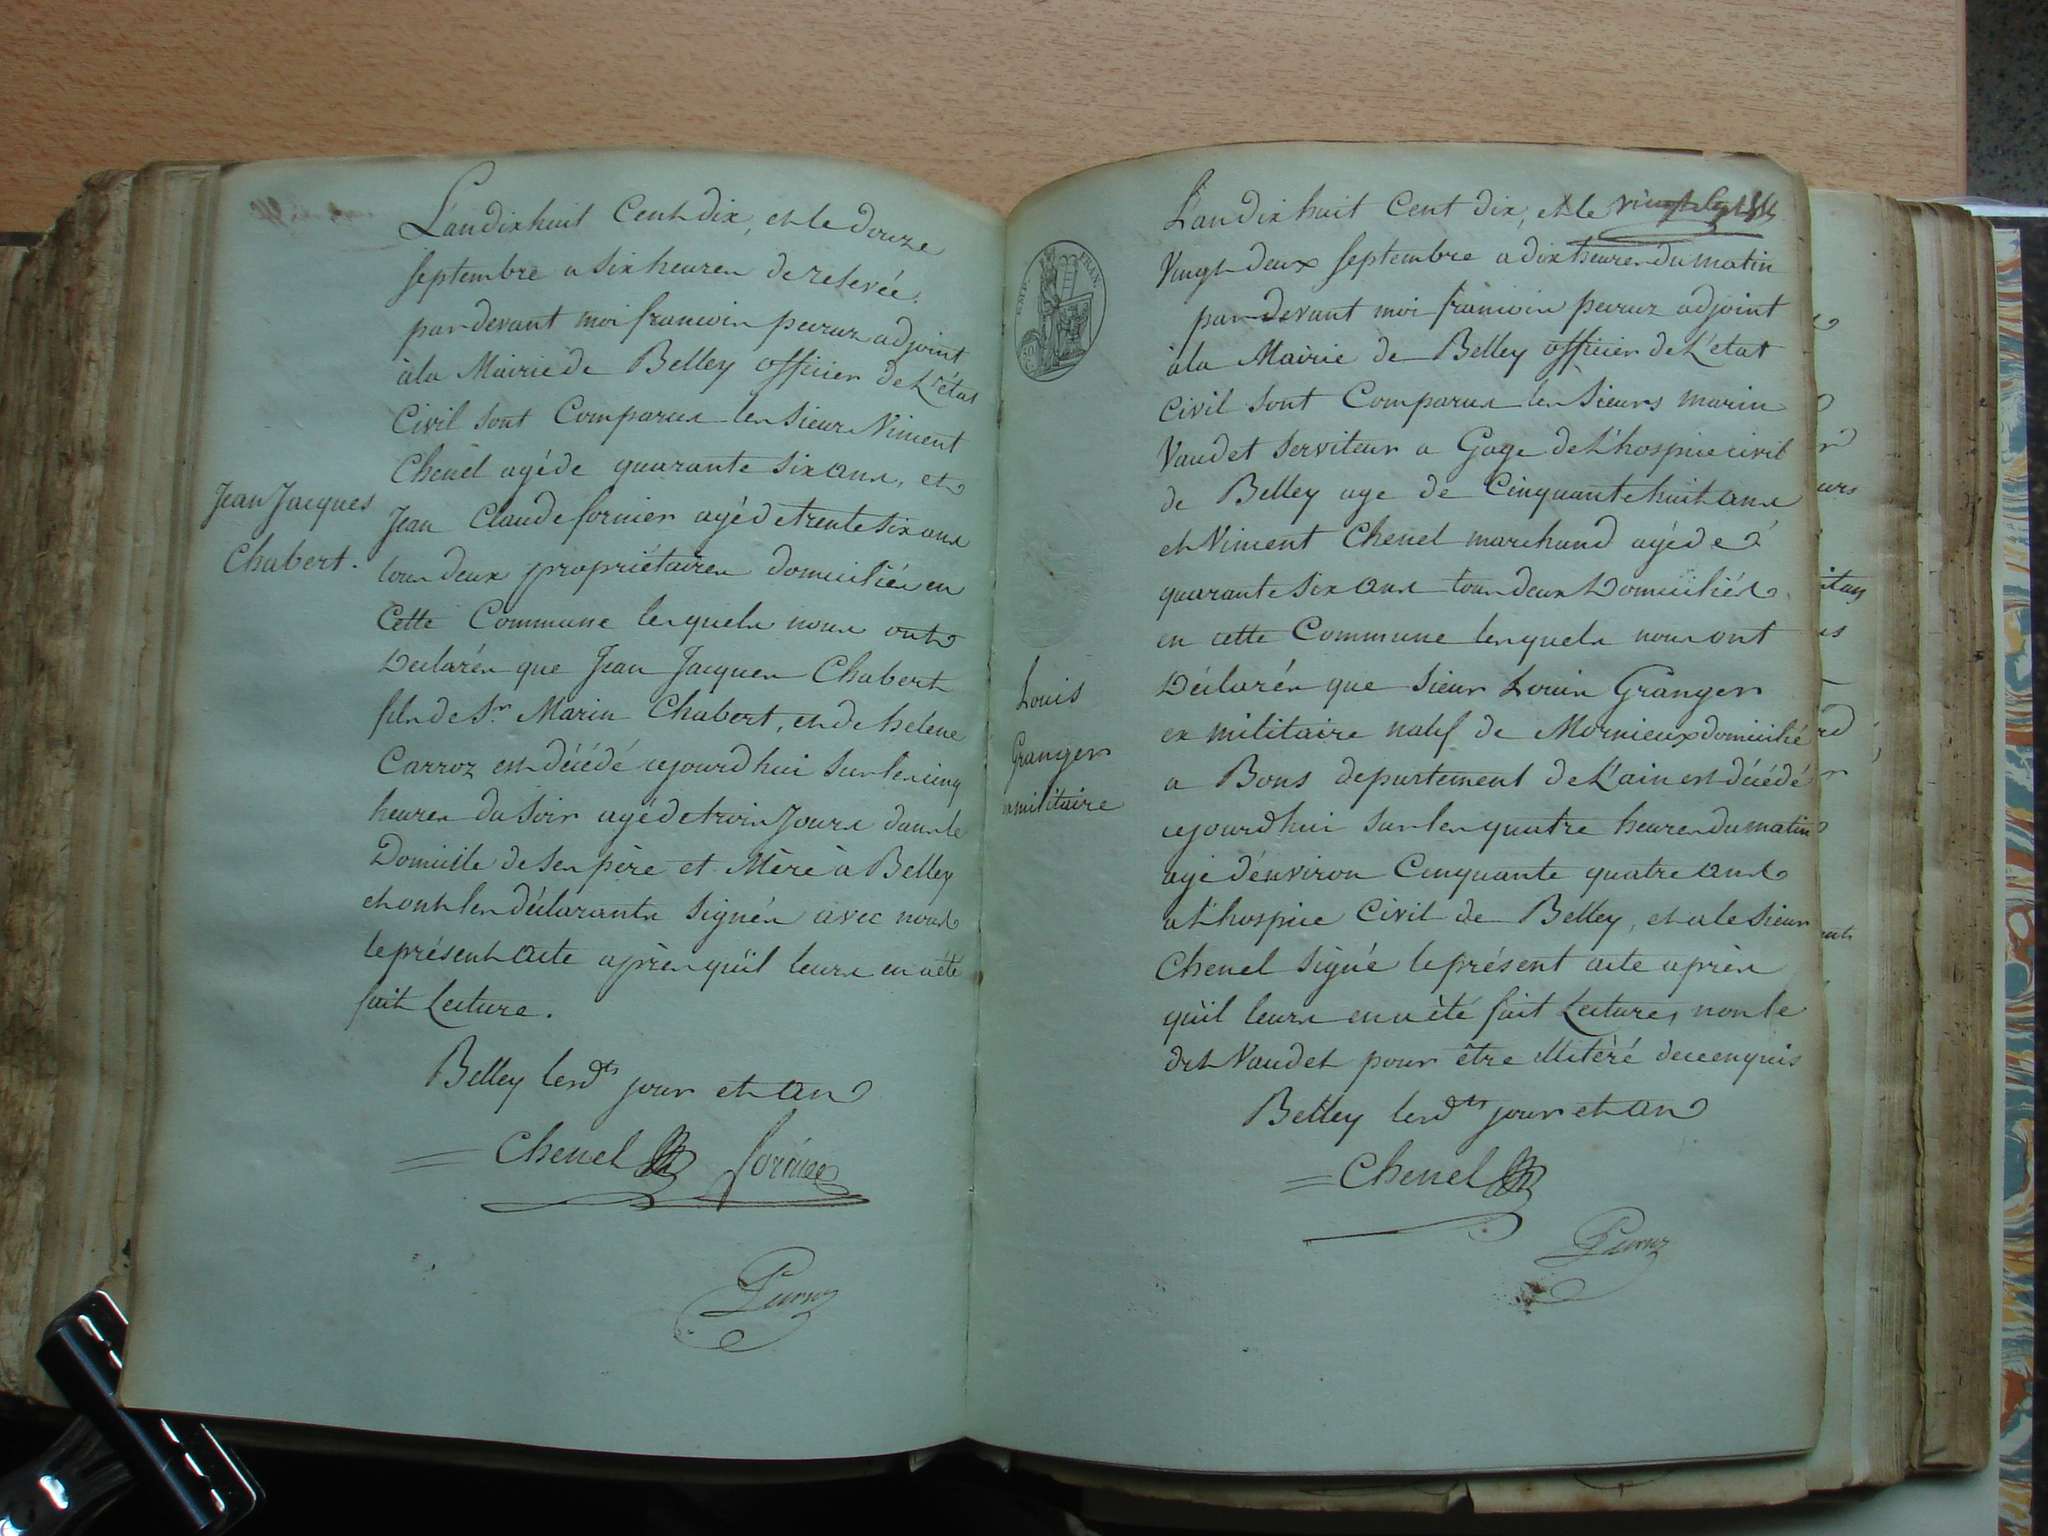 L'an dix huit Cent dix, et le douze
septembre a six heures de relevée,
pardevant moi francois peuruz adjoint
à la Mairie de Belley officier de L'état
Civil sont Comparus les sieurs Vincent
Chenel agé de quarante six ans, et
Jean Jacques
Chabert.
Jean Claude fornier agé de trente six ans
tous deux propriétaires domiciliés en
Cette Commune lesquels nous ont
Déclarés que Jean Jacques Chabert
fils de Sr. Marin Chabert, et de heléne
Carroz est décédé cejourdhui sur les cinq
heures du soir agé de trois Jours dans le
Domicile de ses père et Mère à Belley
et ont les déclarants signés avec nous
le présent acte après qu'il leurs en a été
fait Lecture.
Belley les dts jour et an
Chenel fornier
Peuruz
EMP. FRAN.
L'an dix huit Cent dix, et le
Vingt deux septembre a dix heures du matin
par devant moi francois peuruz adjoint
à la Mairie de Belley officier de L'etat
Civil sont Comparus les Sieurs marin
Vaudet serviteur a Gage de L'hospice civil
de Belley age de Cinquante huit ans
et Vincent Chenel marchand agé de
quarante six ans tous deux Domiciliés
en cette Commune lesquels nous ont
Louis
Granger
exmilitaire
Déclarés que sieur Louis Granger
ex militaire natif de Mornieux domicilié
a Bons departement de L'ain est décédé
cejourdhui sur les quatre heures du matin
agé d'environ Cinquante quatre ans
a L'hospice Civil de Belley, et a le sieur
Chenel signé le présent acte après
qu'il leurs en a été fait Lecture, non le
dit Vaudet pour être illitéré de ce enquis
Belley les dts jour et an
Chenel
Peuruz